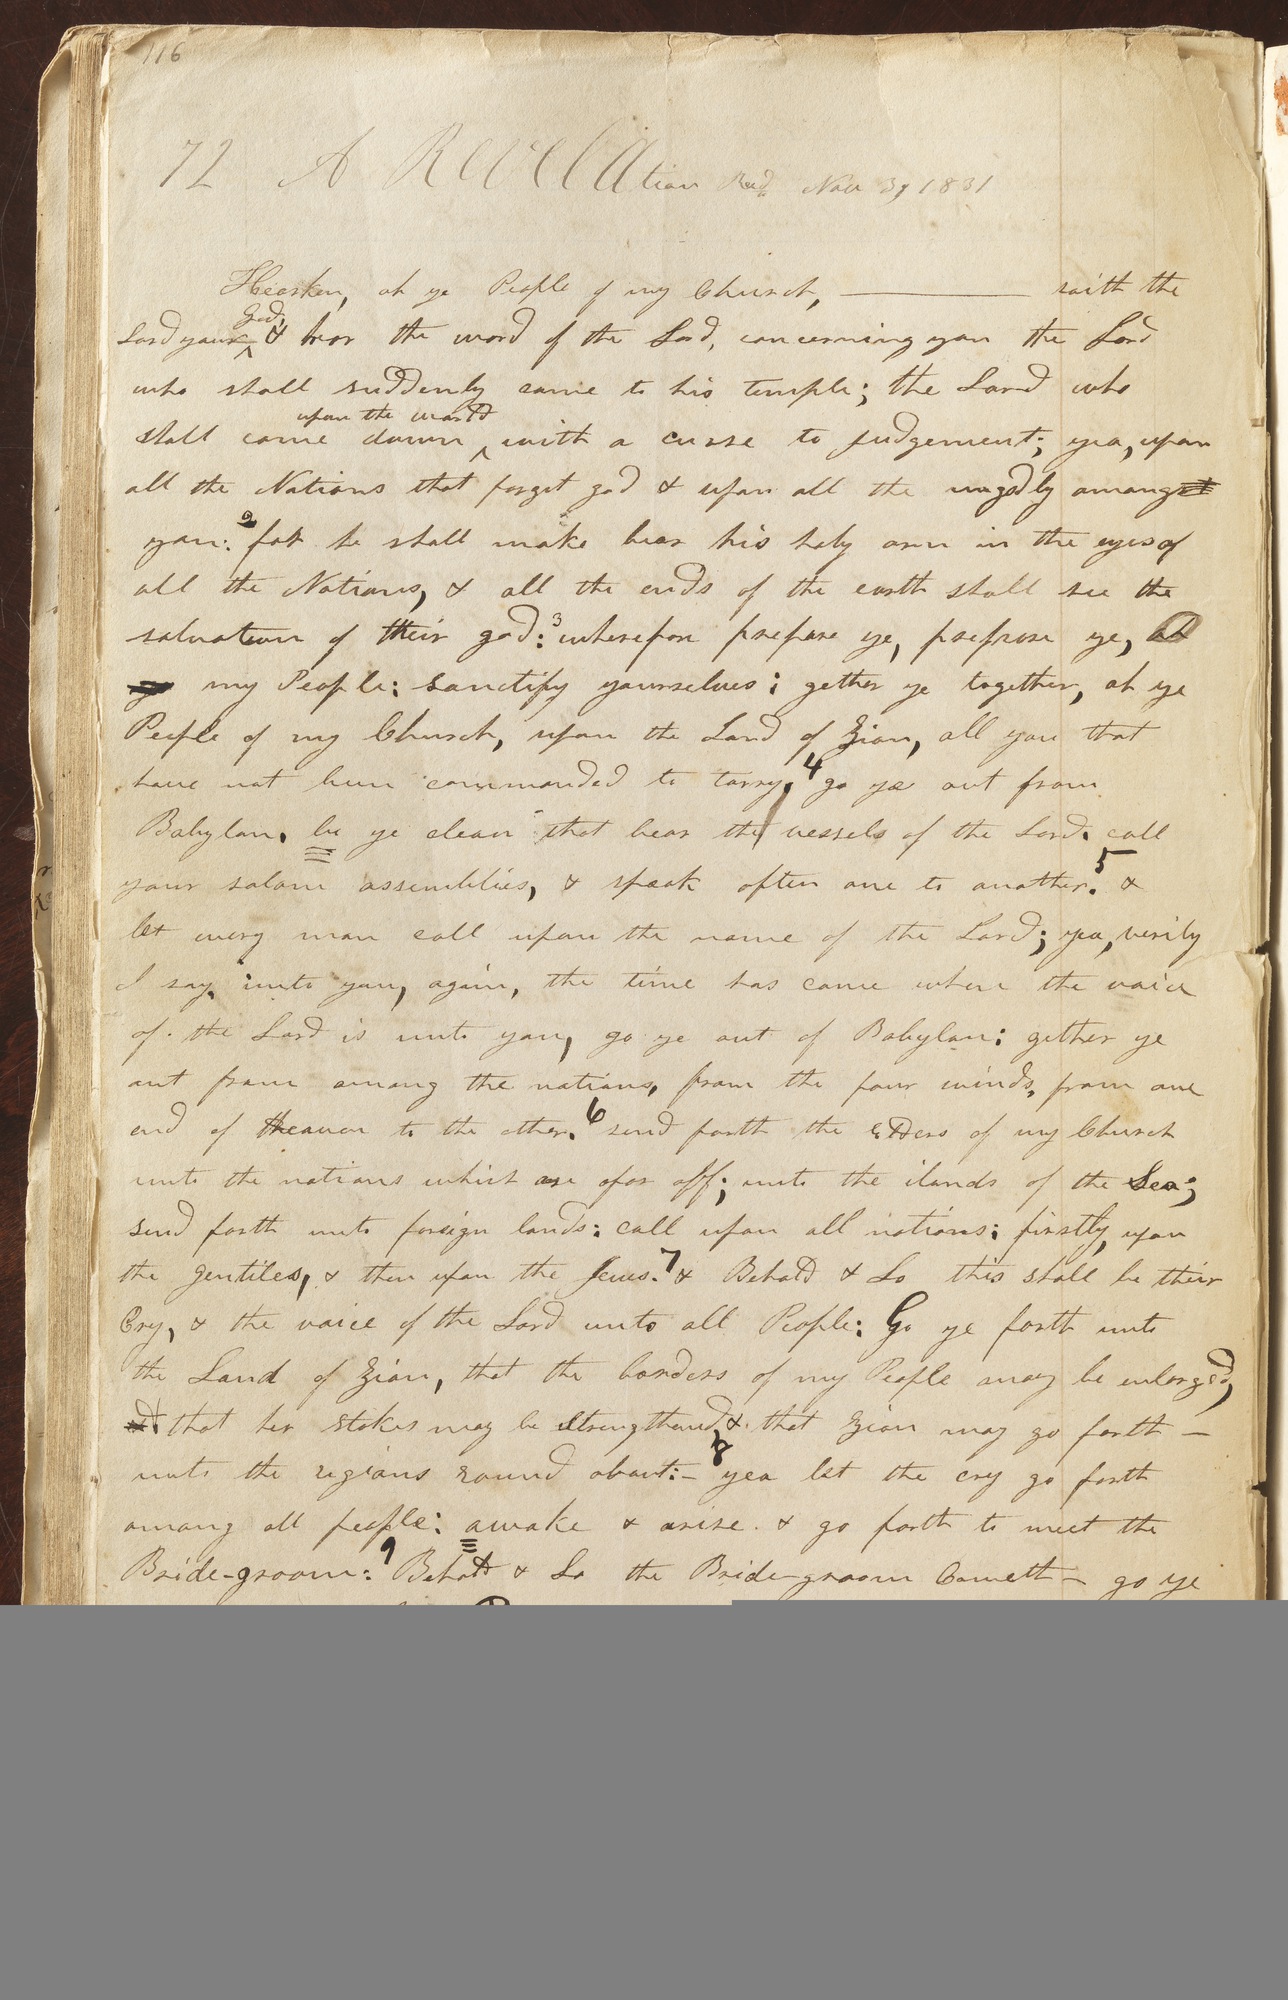 116
72 A Revelation Recd. Nov 3, 1831
Hearken, oh ye People of my Church, ———— saith the
God,
Lord your ^ & hear the word of the Lord, concerning you the Lord
who shall suddenly come to his temple; the Lord who
upon the world
shall come down ^ with a curse to judgement; yea, upon
all the Nations that forget god & upon all the ungodly among
you: 2 for he shall make bear his holy arm in the eyes of
all the Nations, & all the ends of the earth shall see the
salvation of their god: 3 wherefore prepare ye, prepare ye,
my People: sanctify yourselves; gether ye together, oh ye
People of my Church, upon the Land of Zion, all you that
have not been commanded to tarry. 4 go ye out from
Babylon. be ye clean that bear the vessels of the Lord. call
your solom assemblies, & speak often one to another. 5 &
let every man call upon the name of the Lord; yea, verily
I say, unto you, again, the time has come when the voice
of the Lord is unto you, go ye out of Babylon: gether ye
out from among the nations, from the four winds, from one
end of heaven to the other. 6 send forth the elders of my Church
unto the nations which are afar off; unto the ilands of the Sea;
send forth unto foreign lands: call upon all nations: firstly, upon
the gentiles, & then upon the Jews. 7 & Behold & Lo this shall be their
Cry, & the voice of the Lord unto all People: Go ye forth unto
the Land of Zion, that the borders of my People may be enlarged,
that her stakes may be strengthened, & that Zion may go forth —
unto the regions round about:– 8 yea let the cry go forth
among all people: awake & arise. & go forth to meet the
Bride-groom: 9 Behold & Lo the Bride-groom Cometh – go ye